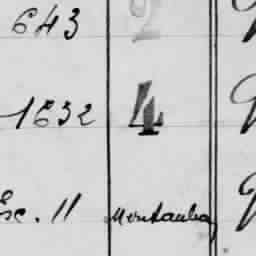 643 2
1632 4
Esc. 11 Montauban